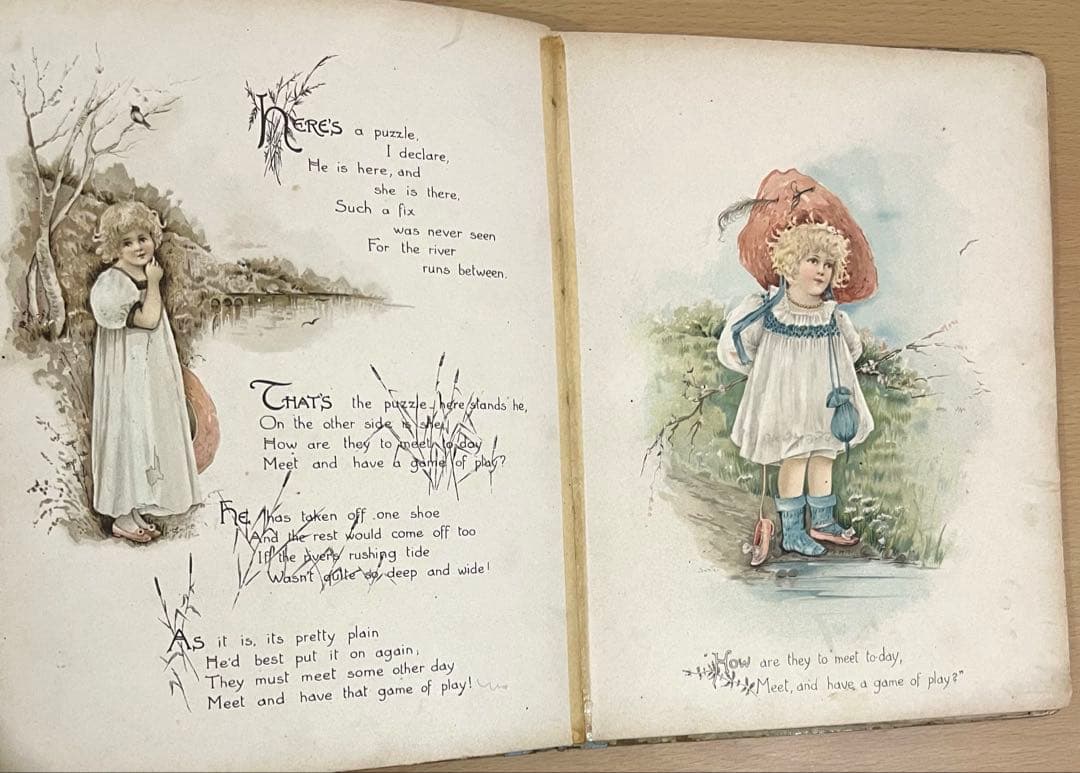 HERE'S a puzzle,
I declare,
He is here, and
she is there,
Such a fix
was never seen
For the river
runs between.
THAT'S the puzzle, here stands he,
On the other side is she,
How are they to meet to-day
Meet and have a game of play?
HE has taken off one shoe
And the rest would come off too
If the rivers rushing tide
Wasn't quite so deep and wide!
AS it is, its pretty plain
He'd best put it on again,
They must meet some other day
Meet and have that game of play!
"HOW are they to meet to-day,
Meet, and have a game of play?"